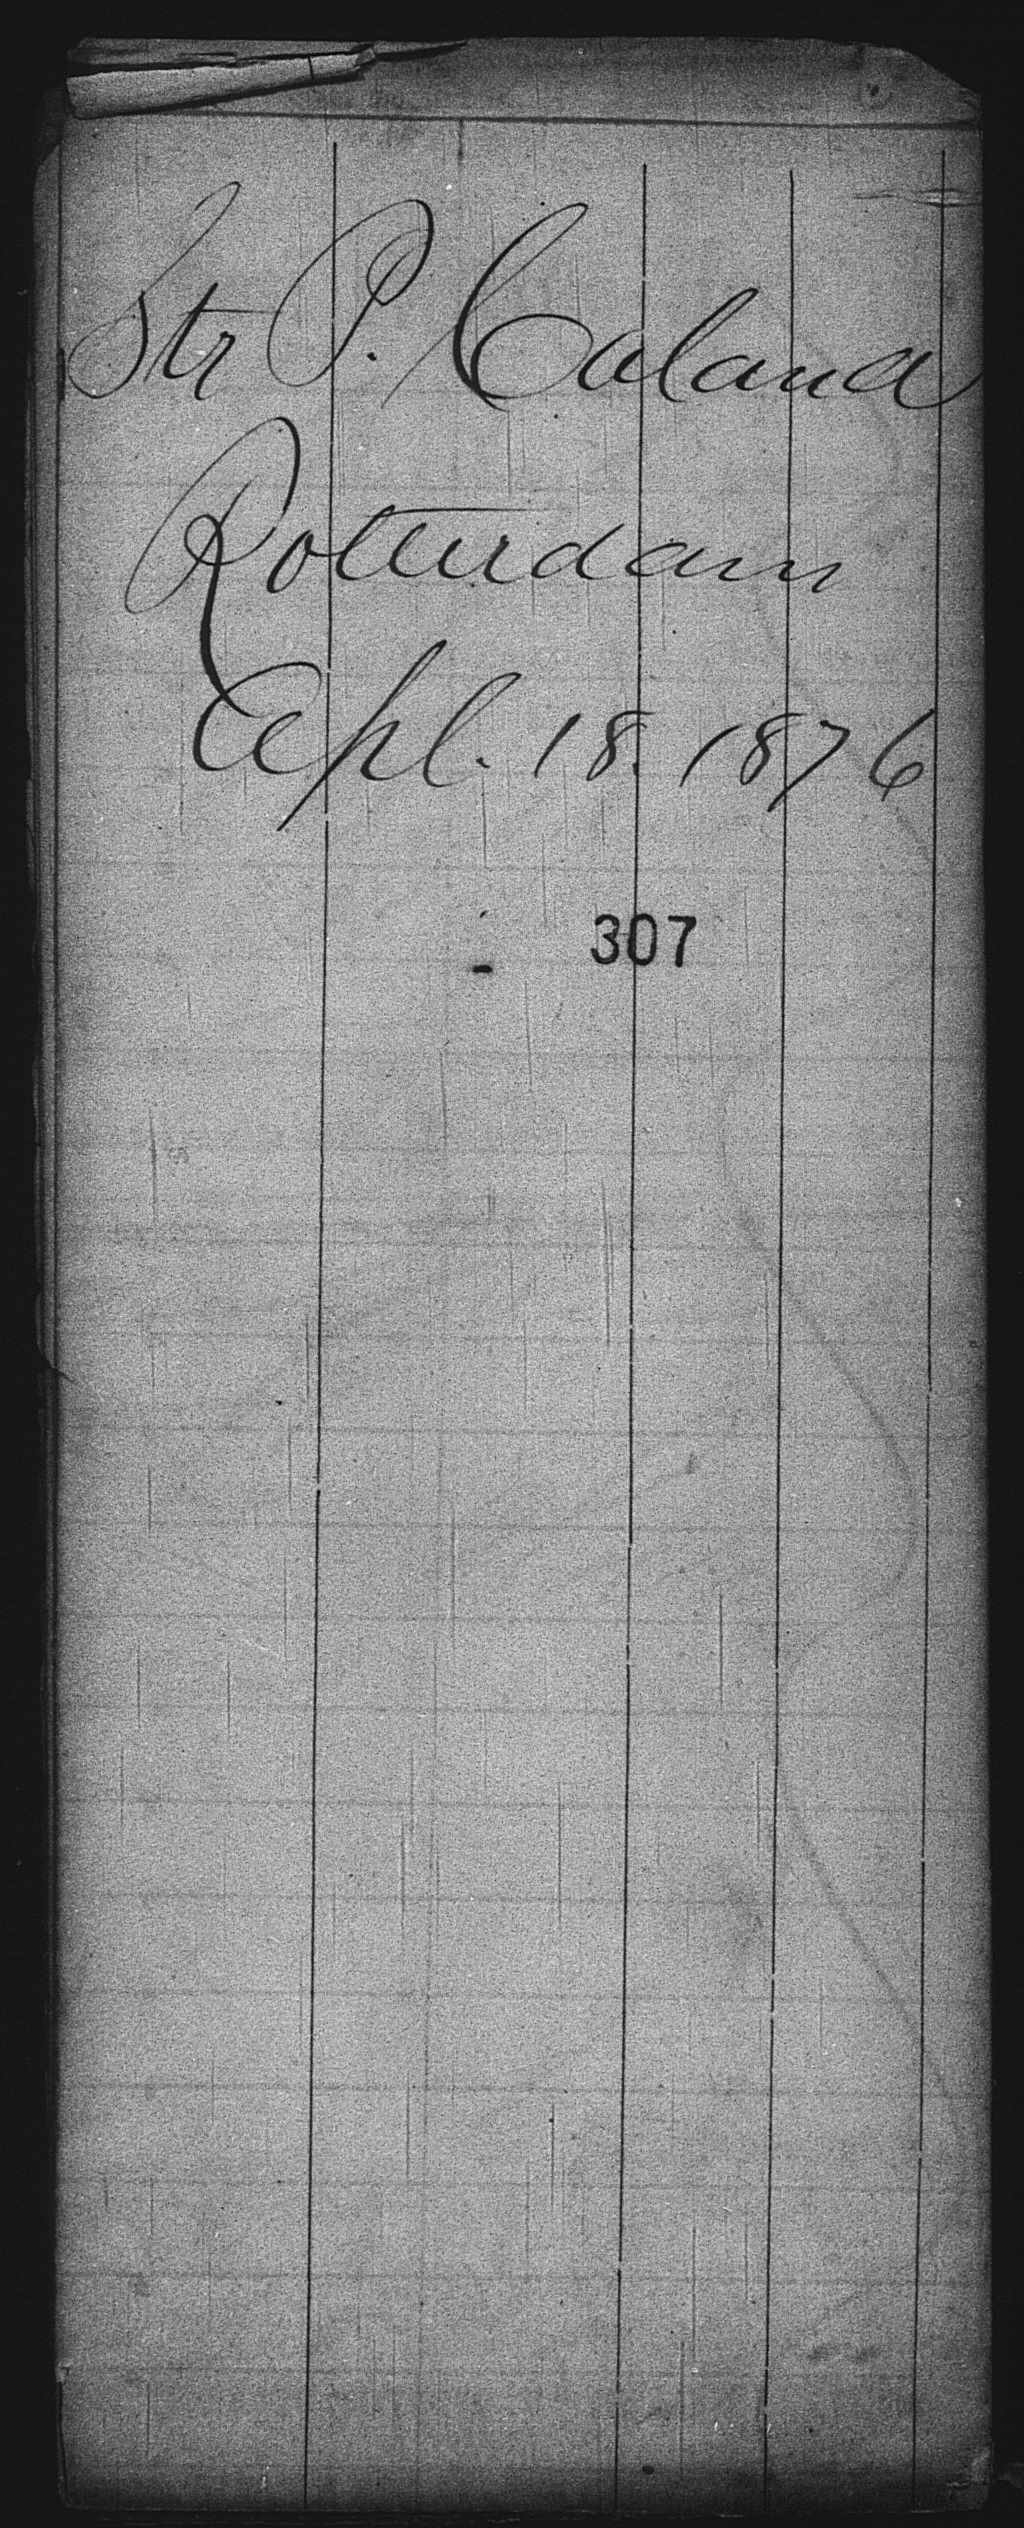 Str P. Caland
Rotterdam
Apl. 18. 1876
307